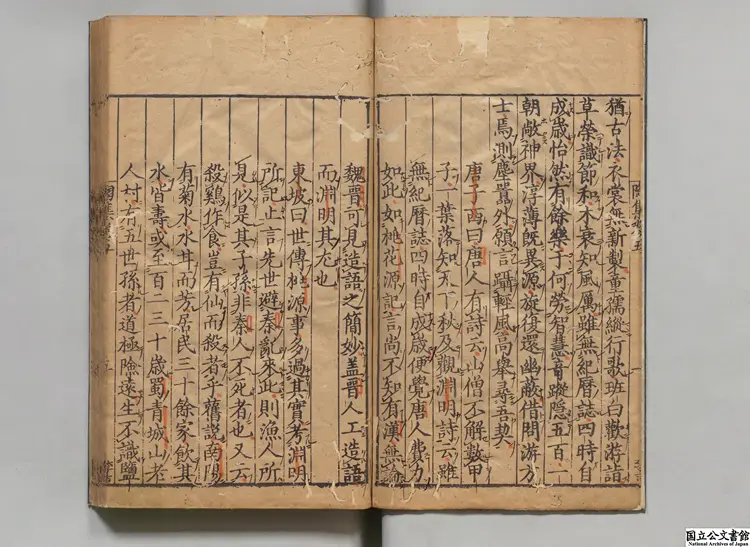 猶古法衣裳無新製童孺縱行歌班白歡游詣
草榮識節和木衰知風厲雖無紀曆誌四時自
成歲怡然有餘樂于何勞智慧竒蹤隱五百一
朝敞神界淳薄既異源旋復還幽蔽借問游方
士焉測塵囂外願言躡輕風高舉尋吾契
唐子西曰唐人有詩云山僧不解數甲
子一葉落知天下秋及觀淵明詩云雖
無紀曆誌四時自成歲便覺唐人費力
如此如桃花源記言尚不知有漢無論
魏晉可見造語之簡妙盖晉人工造語
而淵明其尤也
東坡曰世傳桃源事多過其實考淵明
所記止言先世避秦亂來此則漁人所
見似是其子孫非秦人不死者也又云
殺鷄作食豈有仙而殺者乎舊說南陽
有菊水水甘而芳居民三十餘家飲其
水皆壽或至百二三十歲蜀青城山老
人村有五世孫者道極險遠生不識鹽
国立公文書館
National Archives of Japan